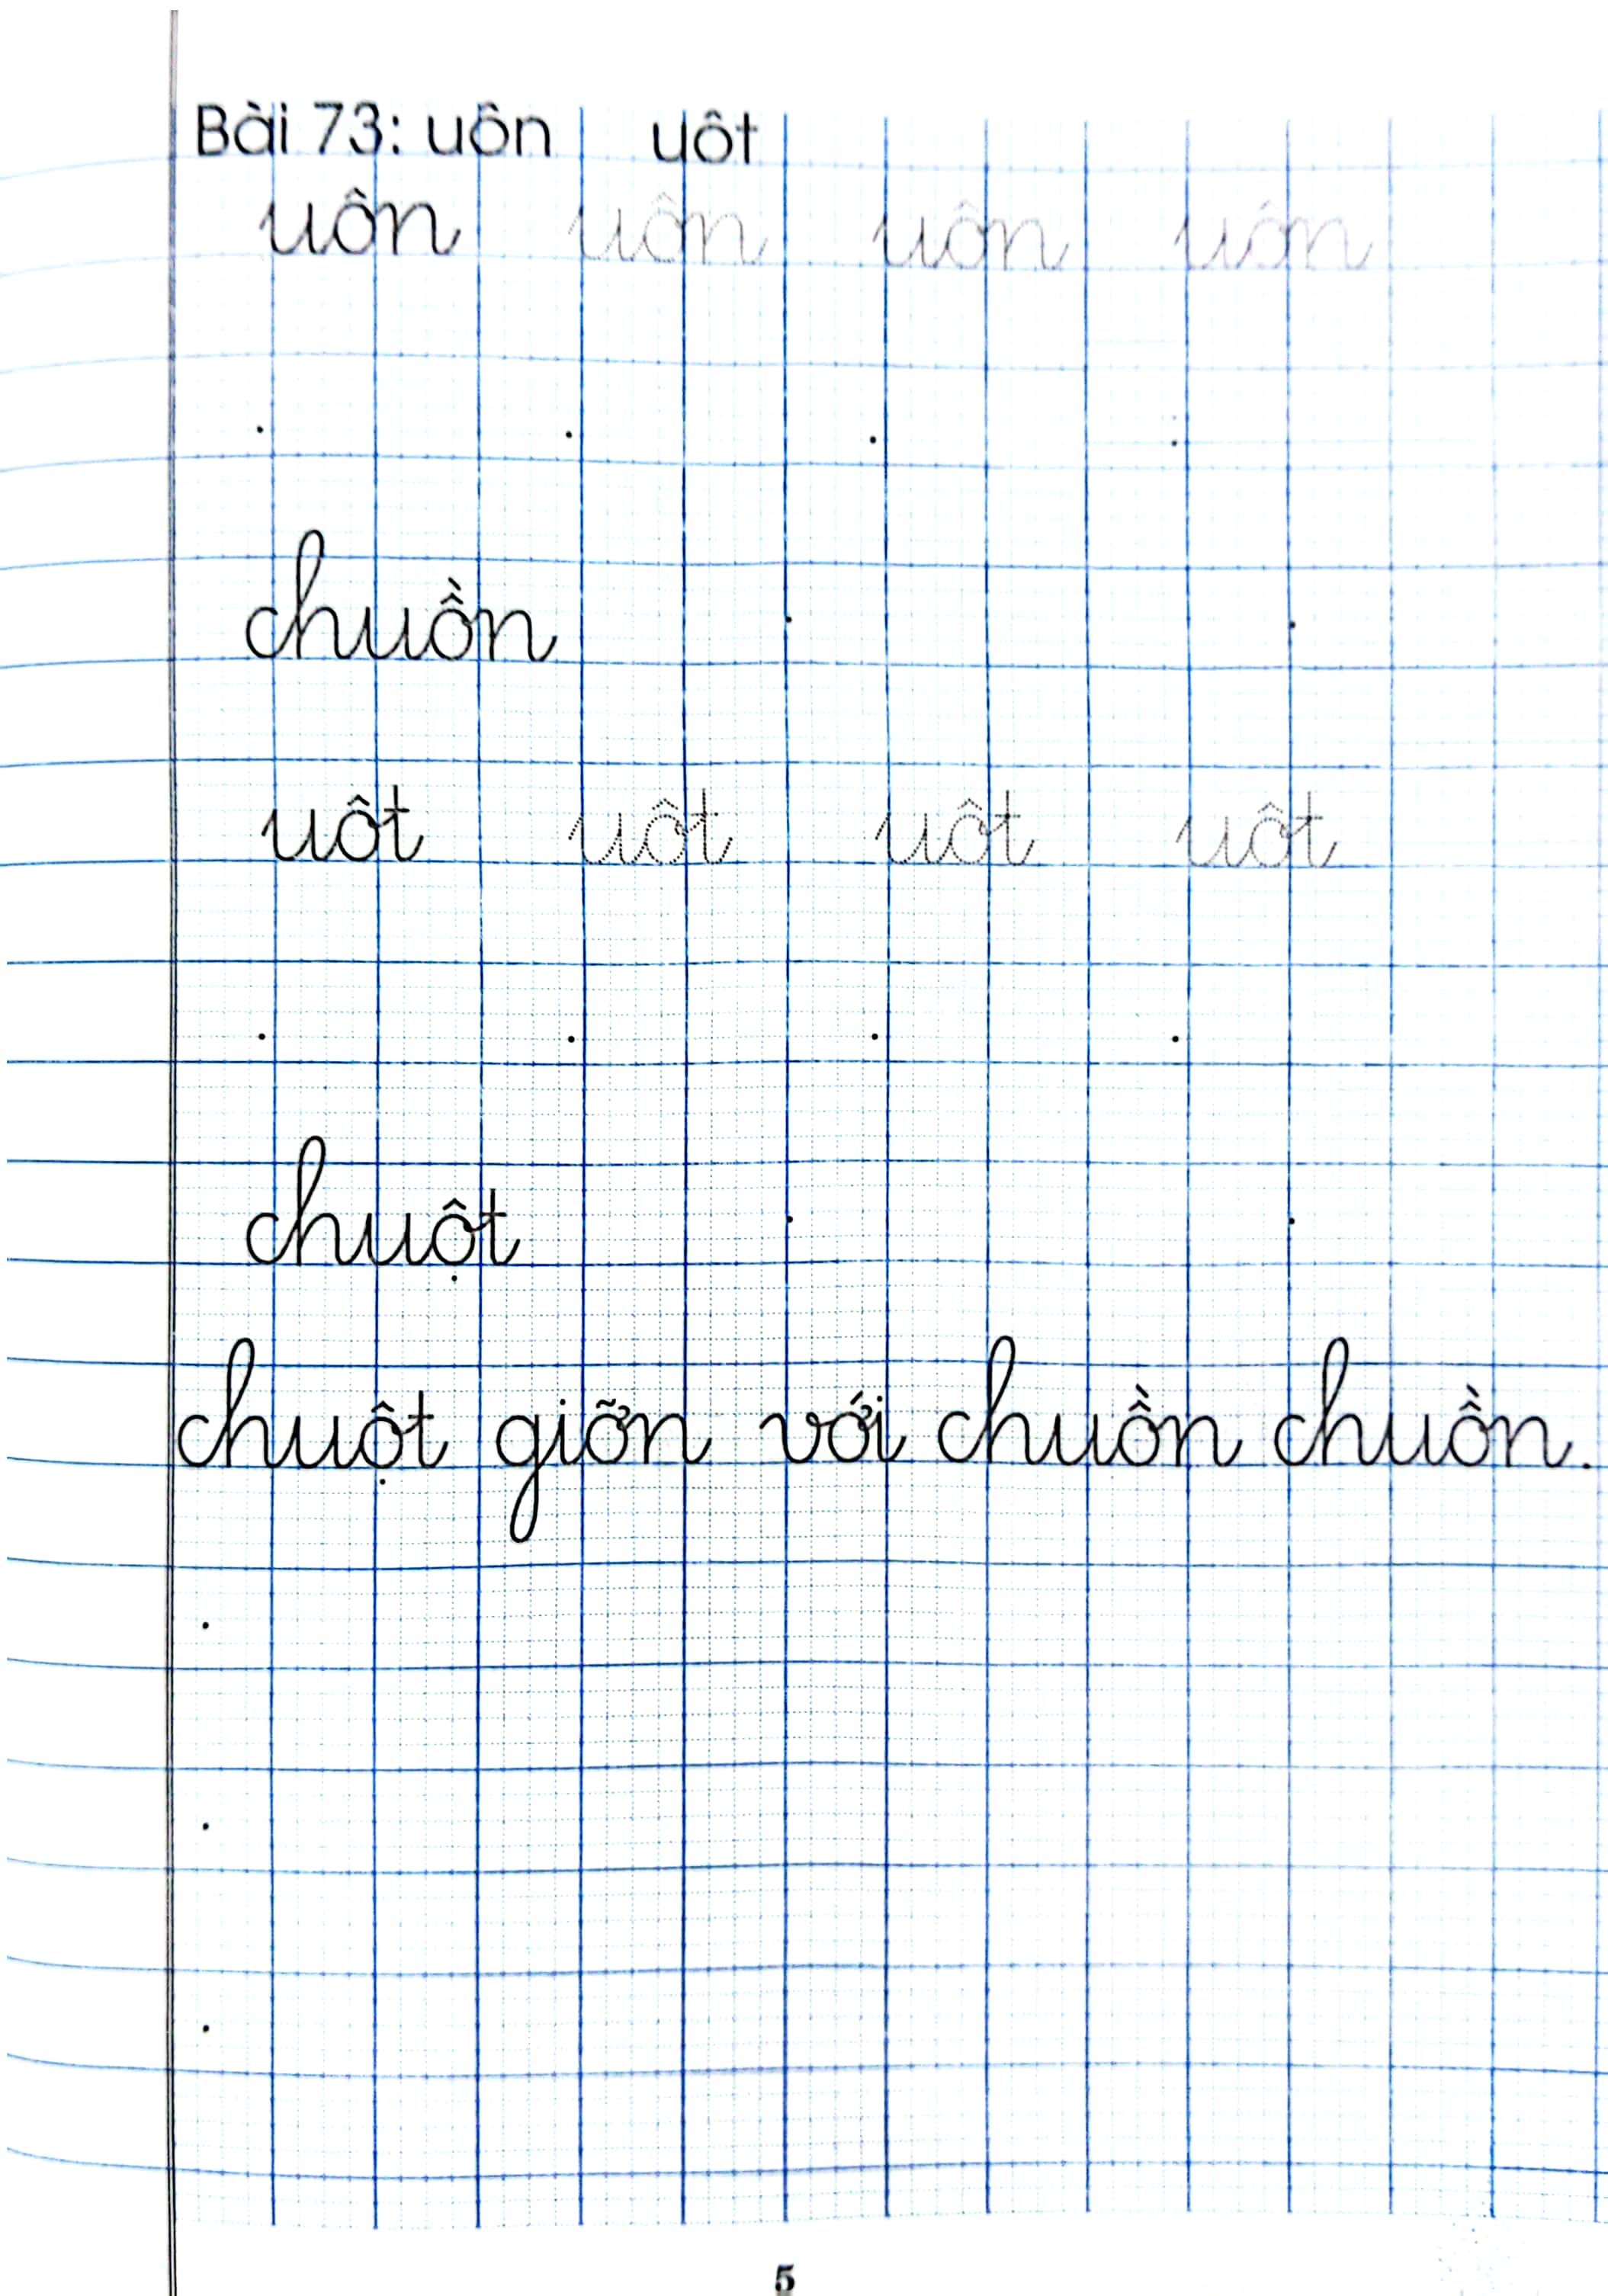 Bài 73: uôn uôt
uôn uôn uôn uôn
chuồn
uôt uôt uôt uôt
chuột
chuột giỡn với chuồn chuồn.
5